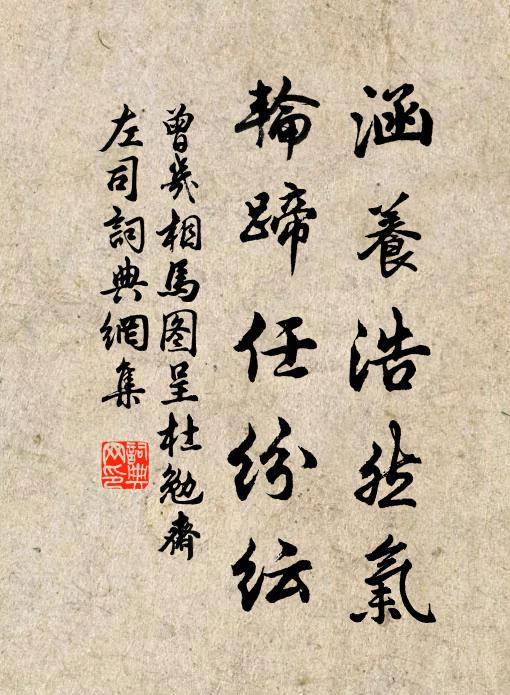 涵養浩然氣
輪蹄任紛紜
曾幾相馬图呈杜勉齋
左司詞典網集
詞典
网印